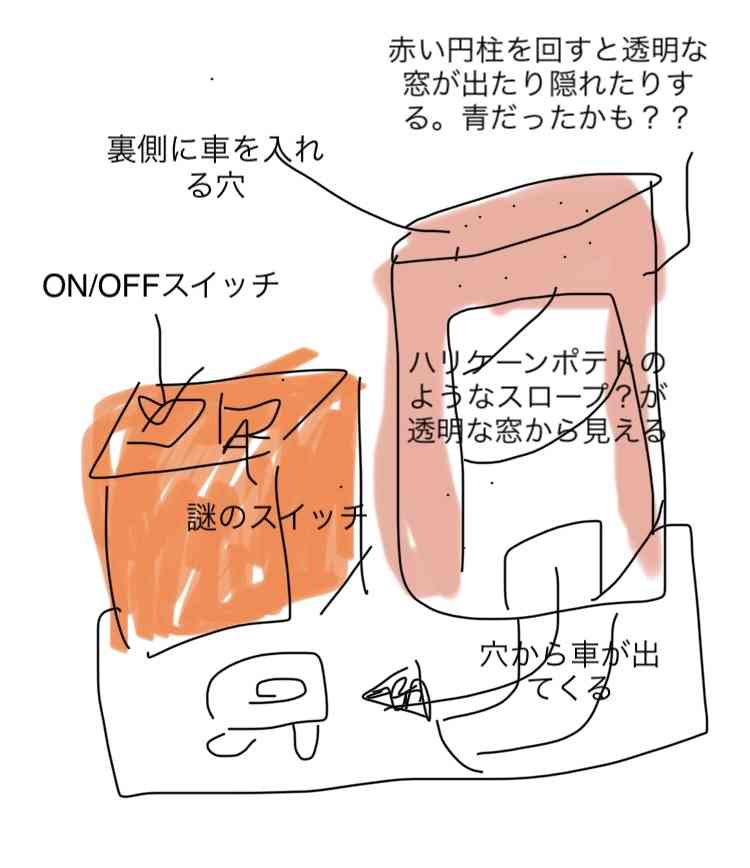 赤い円柱を回すと透明な
窓が出たり隠れたりす
る。青だったかも？？
裏側に車を入れ
る穴
ON/OFFスイッチ
ハリケーンポテトの
ようなスロープ？が
透明な窓から見える
謎のスイッチ
穴から車が出
てくる